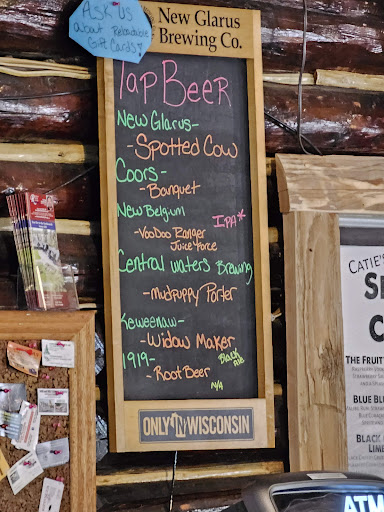 Ask us
about Reloadable
Gift Cards
New Glarus
Brewing Co.
Tap Beer
New Glarus-
-Spotted Cow
Coors-
-Banquet
New Belgium
IPA*
-VooDoo Ranger
Juice Force
Central Waters Brewing
-Mudpuppy Porter
Keweenaw-
-Widow Maker
Black Ale
1919-
-Root Beer
N/A
ONLY IN WISCONSIN
CATIE'S
THE FRUIT
BLUE BL
BLACK
LIME
ATM